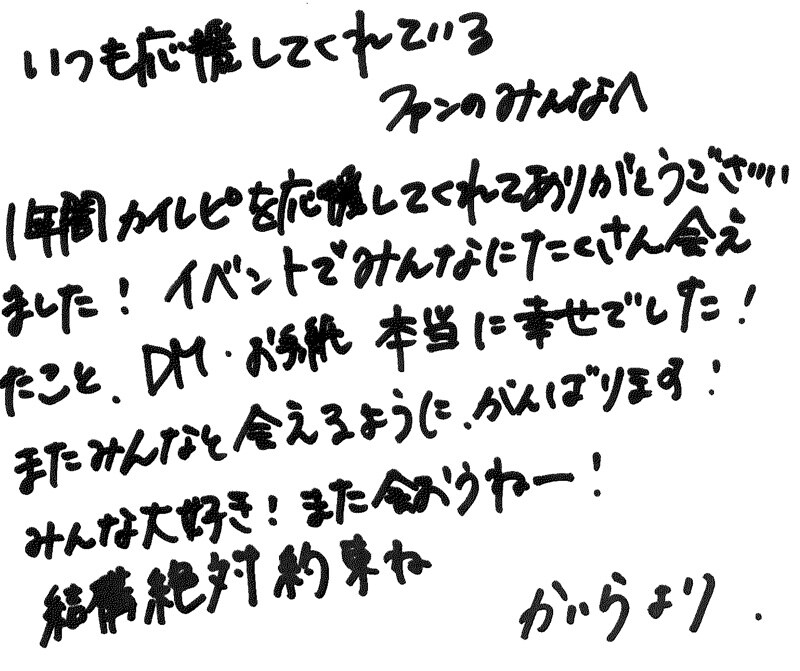 いつも応援してくれている
ファンのみんなへ
1年間カイルピを応援してくれてありがとうござい
ました！イベントでみんなにたくさん会え
たこと、DM・お手紙 本当に幸せでした！
またみんなと会えるように、がんばります！
みんな大好き！また会おうねー！
結構絶対約束ね
がいらより.